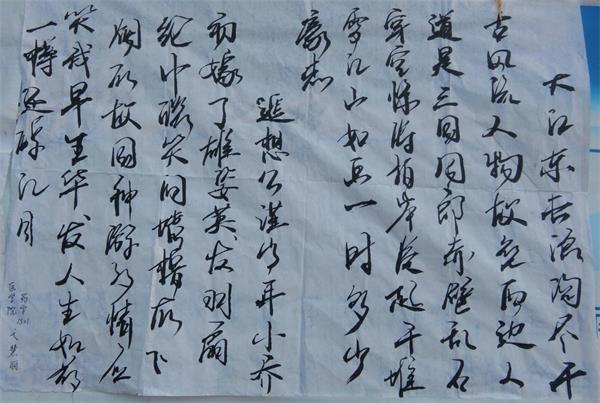 大江东去浪淘尽千
古风流人物故垒西边人
道是三国周郎赤壁乱石
穿空惊涛拍岸卷起千堆
雪江山如画一时多少
豪杰
遥想公瑾当年小乔
初嫁了雄姿英发羽扇
纶巾谈笑间樯橹灰飞
烟灭故国神游多情应
笑我早生华发人生如梦
一樽还酹江月
药学
医学院